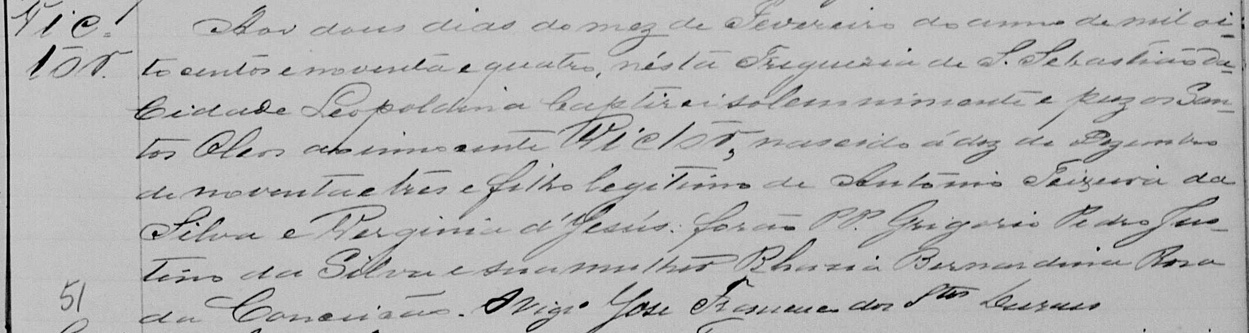 Vic-
tor.
Aos dous dias do mez de Fevereiro do anno de mil oi-
to centos e noventa e quatro, nésta Freguezia de S. Sebastião da
Cidade Leopoldina baptizei solemnimente e puz os San-
tos Oleos ao innocente Victor, nascido á dez de Dezembro
de noventa e três e filho legitimo de Antônio Teixeira da
Silva e Verginia d'Jesús. forão PP. Grigorio Pedro Jus-
tino da Silva e sua mulher Bernardina Rosa
51
da Conceição. O Vigo José Francisco dos Stos